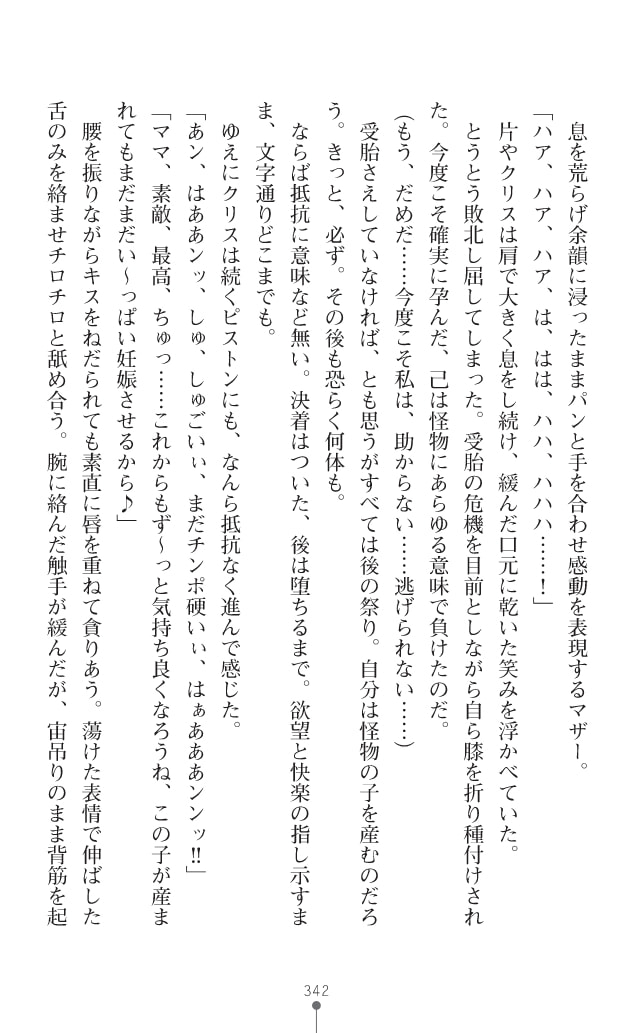 息を荒らげ余韻に浸ったままパンと手を合わせ感動を表現するマザー。
「ハァ、ハァ、ハァ、は、はは、ハハ、ハハハ……！」
片やクリスは肩で大きく息をし続け、緩んだ口元に乾いた笑みを浮かべていた。
とうとう敗北し屈してしまった。受胎の危機を目前としながら自ら膝を折り種付けされ
た。今度こそ確実に孕んだ、己は怪物にあらゆる意味で負けたのだ。
(もう、だめだ……今度こそ私は、助からない……逃げられない……)
受胎さえしていなければ、とも思うがすべては後の祭り。自分は怪物の子を産むのだろ
う。きっと、必ず。その後も恐らく何体も。
ならば抵抗に意味など無い。決着はついた、後は堕ちるまで。欲望と快楽の指し示すま
ま、文字通りどこまでも。
ゆえにクリスは続くピストンにも、なんら抵抗なく進んで感じた。
「あン、はああンッ、しゅ、しゅごいぃ、まだチンポ硬いぃ、はぁあああンンッ‼」
「ママ、素敵、最高、ちゅっ……これからもず～っと気持ち良くなろうね、この子が産ま
れてもまだまだい～っぱい妊娠させるから♪」
腰を振りながらキスをねだられても素直に唇を重ねて貪りあう。蕩けた表情で伸ばした
舌のみを絡ませチロチロと舐め合う。腕に絡んだ触手が緩んだが、宙吊りのまま背筋を起
342